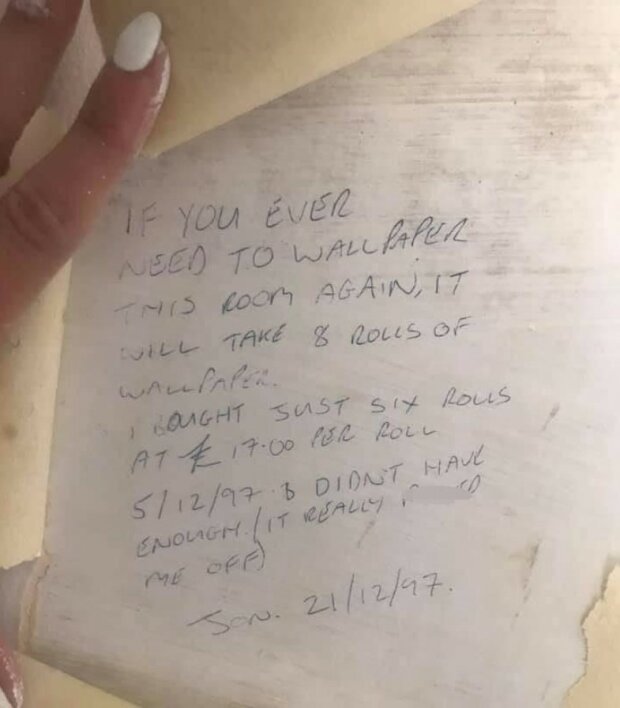 IF YOU EVER
NEED TO WALLPAPER
THIS ROOM AGAIN, IT
WILL TAKE 8 ROLLS OF
WALLPAPER.
I BOUGHT JUST SIX ROLLS
AT £17.00 PER ROLL
5/12/97 & DIDNT HAVE
ENOUGH. (IT REALLY
ME OFF)
JON. 21/12/97.